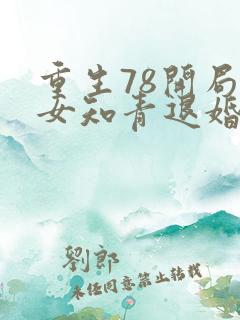 重生78開局
女知青退婚
劉郎
未经同意禁止转载